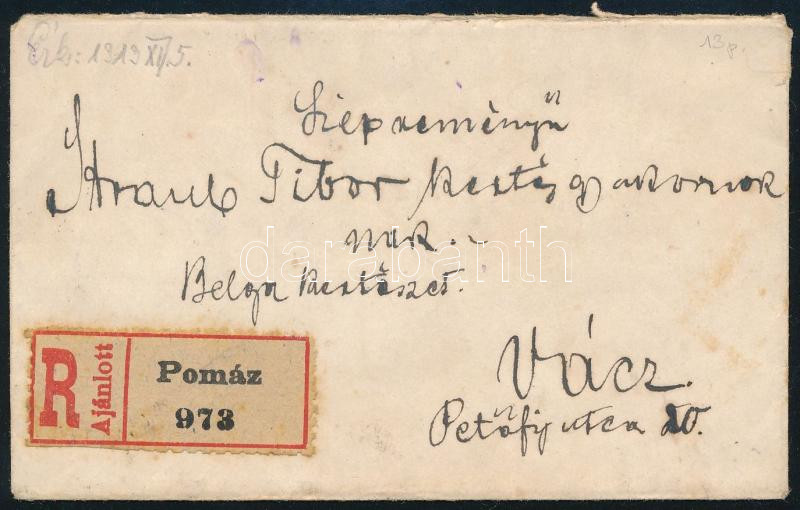 Érk: 1919 XI/5.
13 p.
Szépreményű
Straub Tibor kertész gyakornok
nak.-
Belga kertészet.
Vácz.
Petőfy utca 20.
R
Ajánlott
Pomáz
973
darabanth